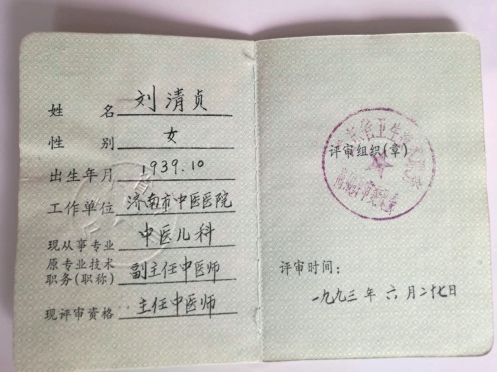 姓 名 刘清贞
性 别 女
出生年月 1939.10
工作单位 济南市中医医院
现从事专业 中医儿科
原专业技术
职务(职称) 副主任中医师
现评审资格 主任中医师
评审组织(章)
评审时间:
一九九三年 六月二十七日